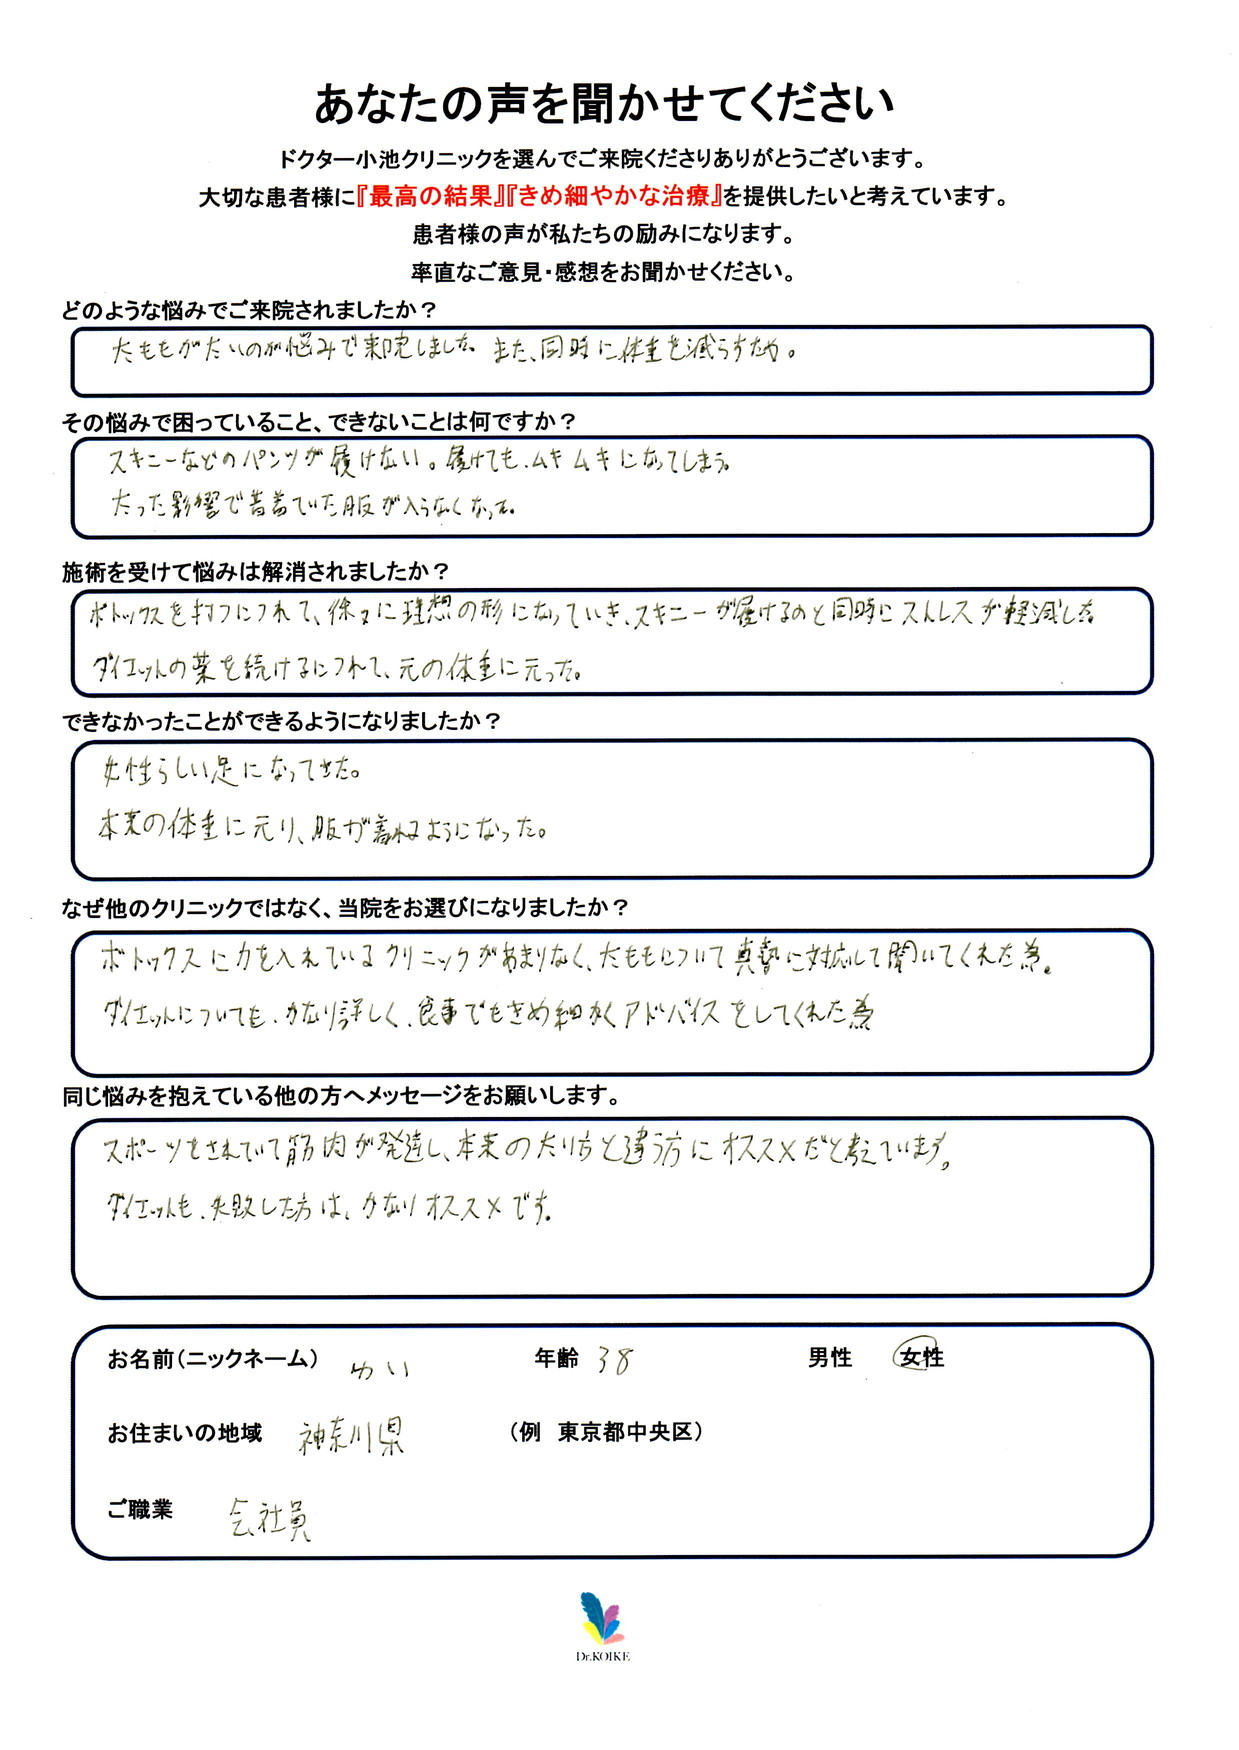 あなたの声を聞かせてください
ドクター小池クリニックを選んでご来院くださりありがとうございます。
大切な患者様に『最高の結果』『きめ細やかな治療』を提供したいと考えています。
患者様の声が私たちの励みになります。
率直なご意見・感想をお聞かせください。
どのような悩みでご来院されましたか？
太ももが太いのが悩みで来院しました。また、同時に体重を減らすため。
その悩みで困っていること、できないことは何ですか？
スキニーなどのパンツが履けない。履けても、ムキムキになってしまう。
太った影響で昔着ていた服が入らなくなった。
施術を受けて悩みは解消されましたか？
ボトックスを打つにつれて、徐々に理想の形になっていき、スキニーが履けるのと同時にストレスが軽減した
ダイエットの薬を続けるにつれて、元の体重に元った。
できなかったことができるようになりましたか？
女性らしい足になってきた。
本来の体重に元り、服が着れるようになった。
なぜ他のクリニックではなく、当院をお選びになりましたか？
ボトックスに力を入れているクリニックがあまりなく、太ももについて真摯に対応して聞いてくれた為。
ダイエットについても、かなり詳しく、食事でもきめ細かくアドバイスをしてくれた為
同じ悩みを抱えている他の方へメッセージをお願いします。
スポーツをされていて筋肉が発達し、本来の太り方と違う方にオススメだと考えています。
ダイエットも、失敗した方は、かなりオススメです。
お名前（ニックネーム） ゆい 年齢 38 男性 女性
お住まいの地域 神奈川県 （例 東京都中央区）
ご職業 会社員
Dr.KOIKE